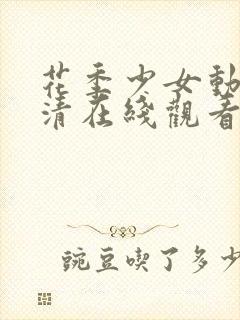 花季少女動
清在綫觀看
豌豆喫了多少